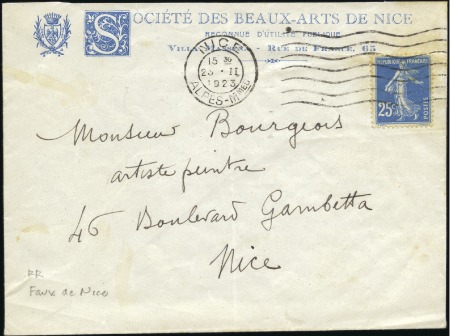 SOCIÉTÉ DES BEAUX-ARTS DE NICE
RECONNUE D'UTILITÉ PUBLIQUE
RUE DE FRANCE, 65
NICE
15 30
23 - II
1923
ALPES-MMES
RÉPUBLIQUE FRANÇAISE
25c
POSTES
Monsieur Bourgeois
artiste peintre
46 Boulevard Gambetta
Nice
RR
Faux de Nice